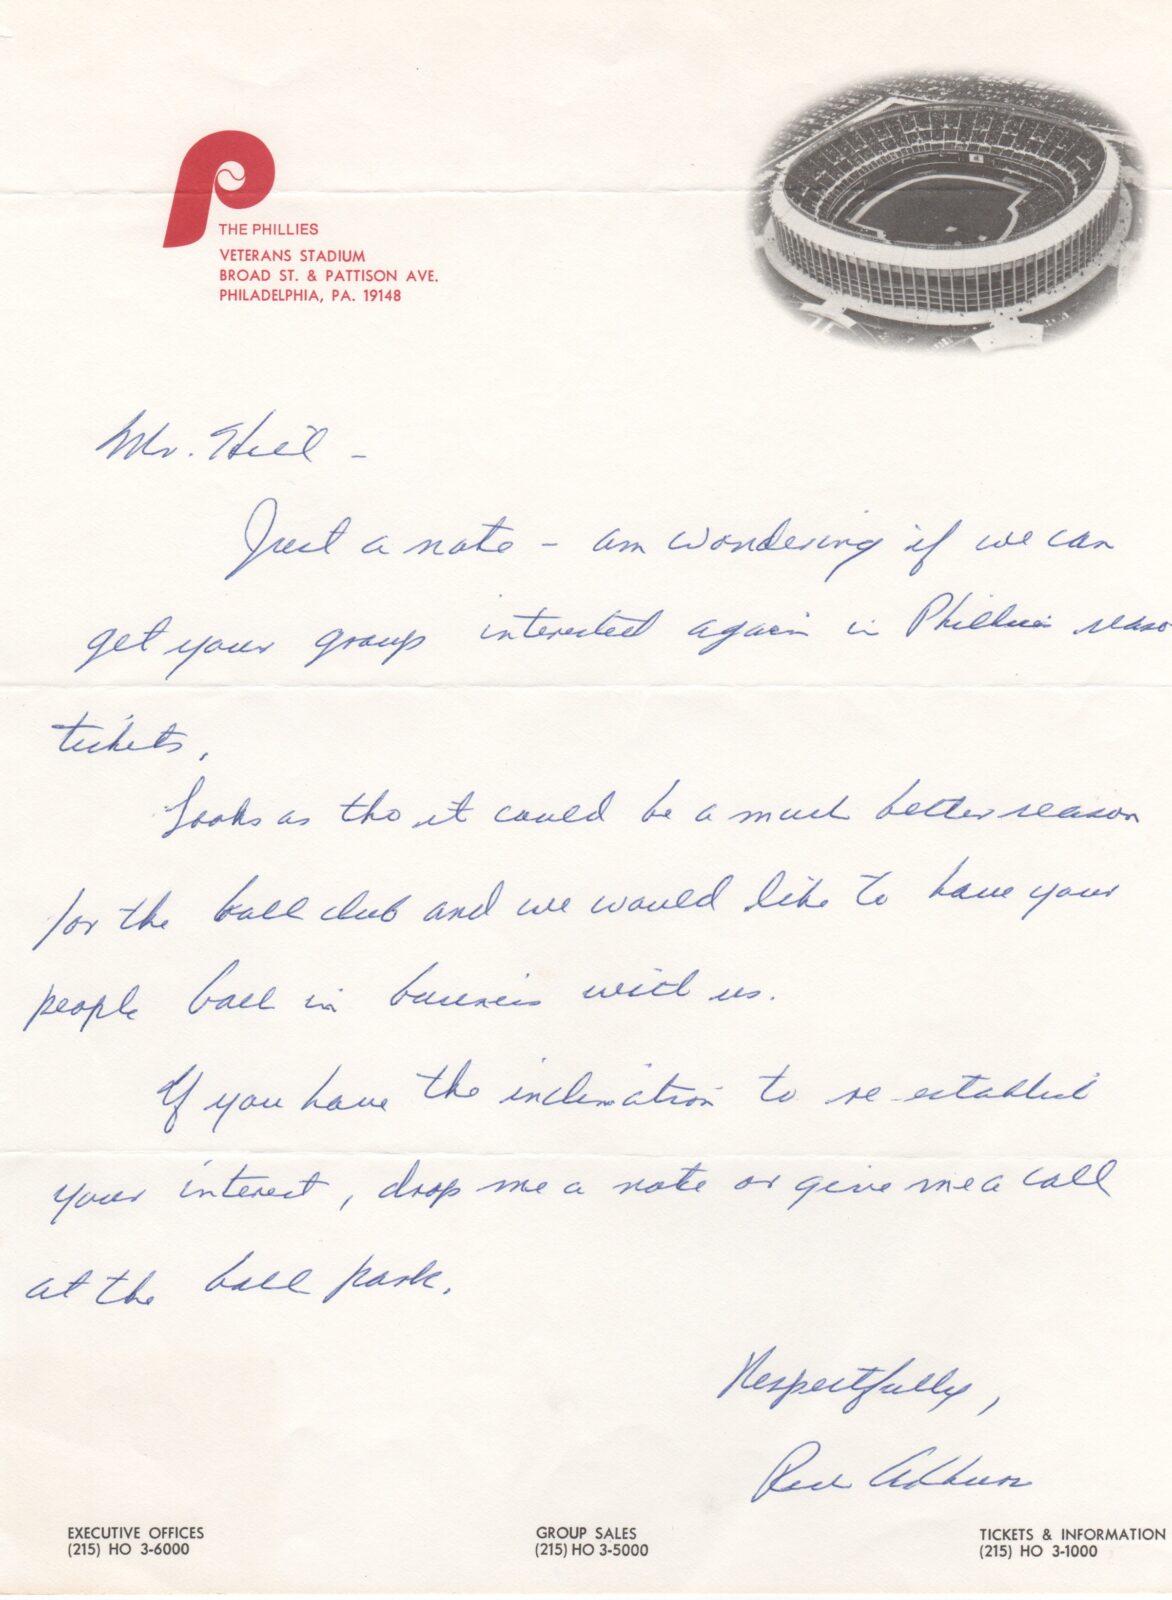 THE PHILLIES
VETERANS STADIUM
BROAD ST. & PATTISON AVE.
PHILADELPHIA, PA. 19148
Mr. Hill -
Just a note - am wondering if we can
get your group interested again in Phillies seaso
tickets.
Looks as tho it could be a much better season
for the ball club and we would like to have your
people back in business with us.
If you have the inclination to re-establish
your interest, drop me a note or give me a call
at the ball park.
Respectfully,
EXECUTIVE OFFICES GROUP SALES TICKETS & INFORMATION
(215) HO 3-6000 (215) HO 3-5000 (215) HO 3-1000